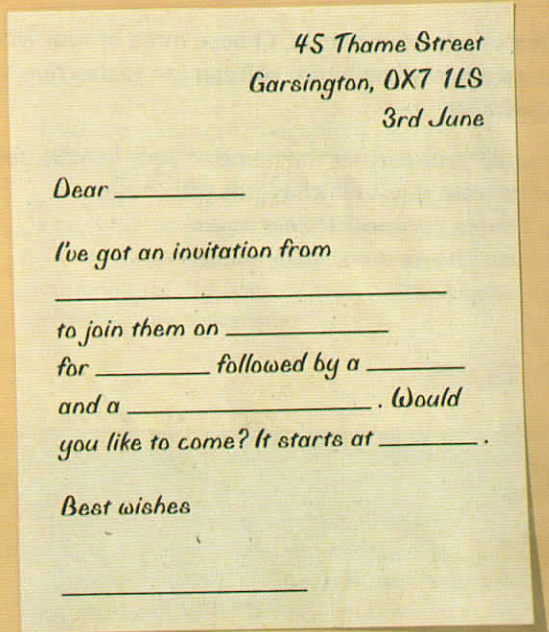 45 Thame Street
Garsington, OX7 1LS
3rd June
Dear __________
I've got an invitation from
______________________________
to join them on ____________
for _________ followed by a ________
and a ___________________. Would
you like to come? It starts at ________.
Best wishes
___________________